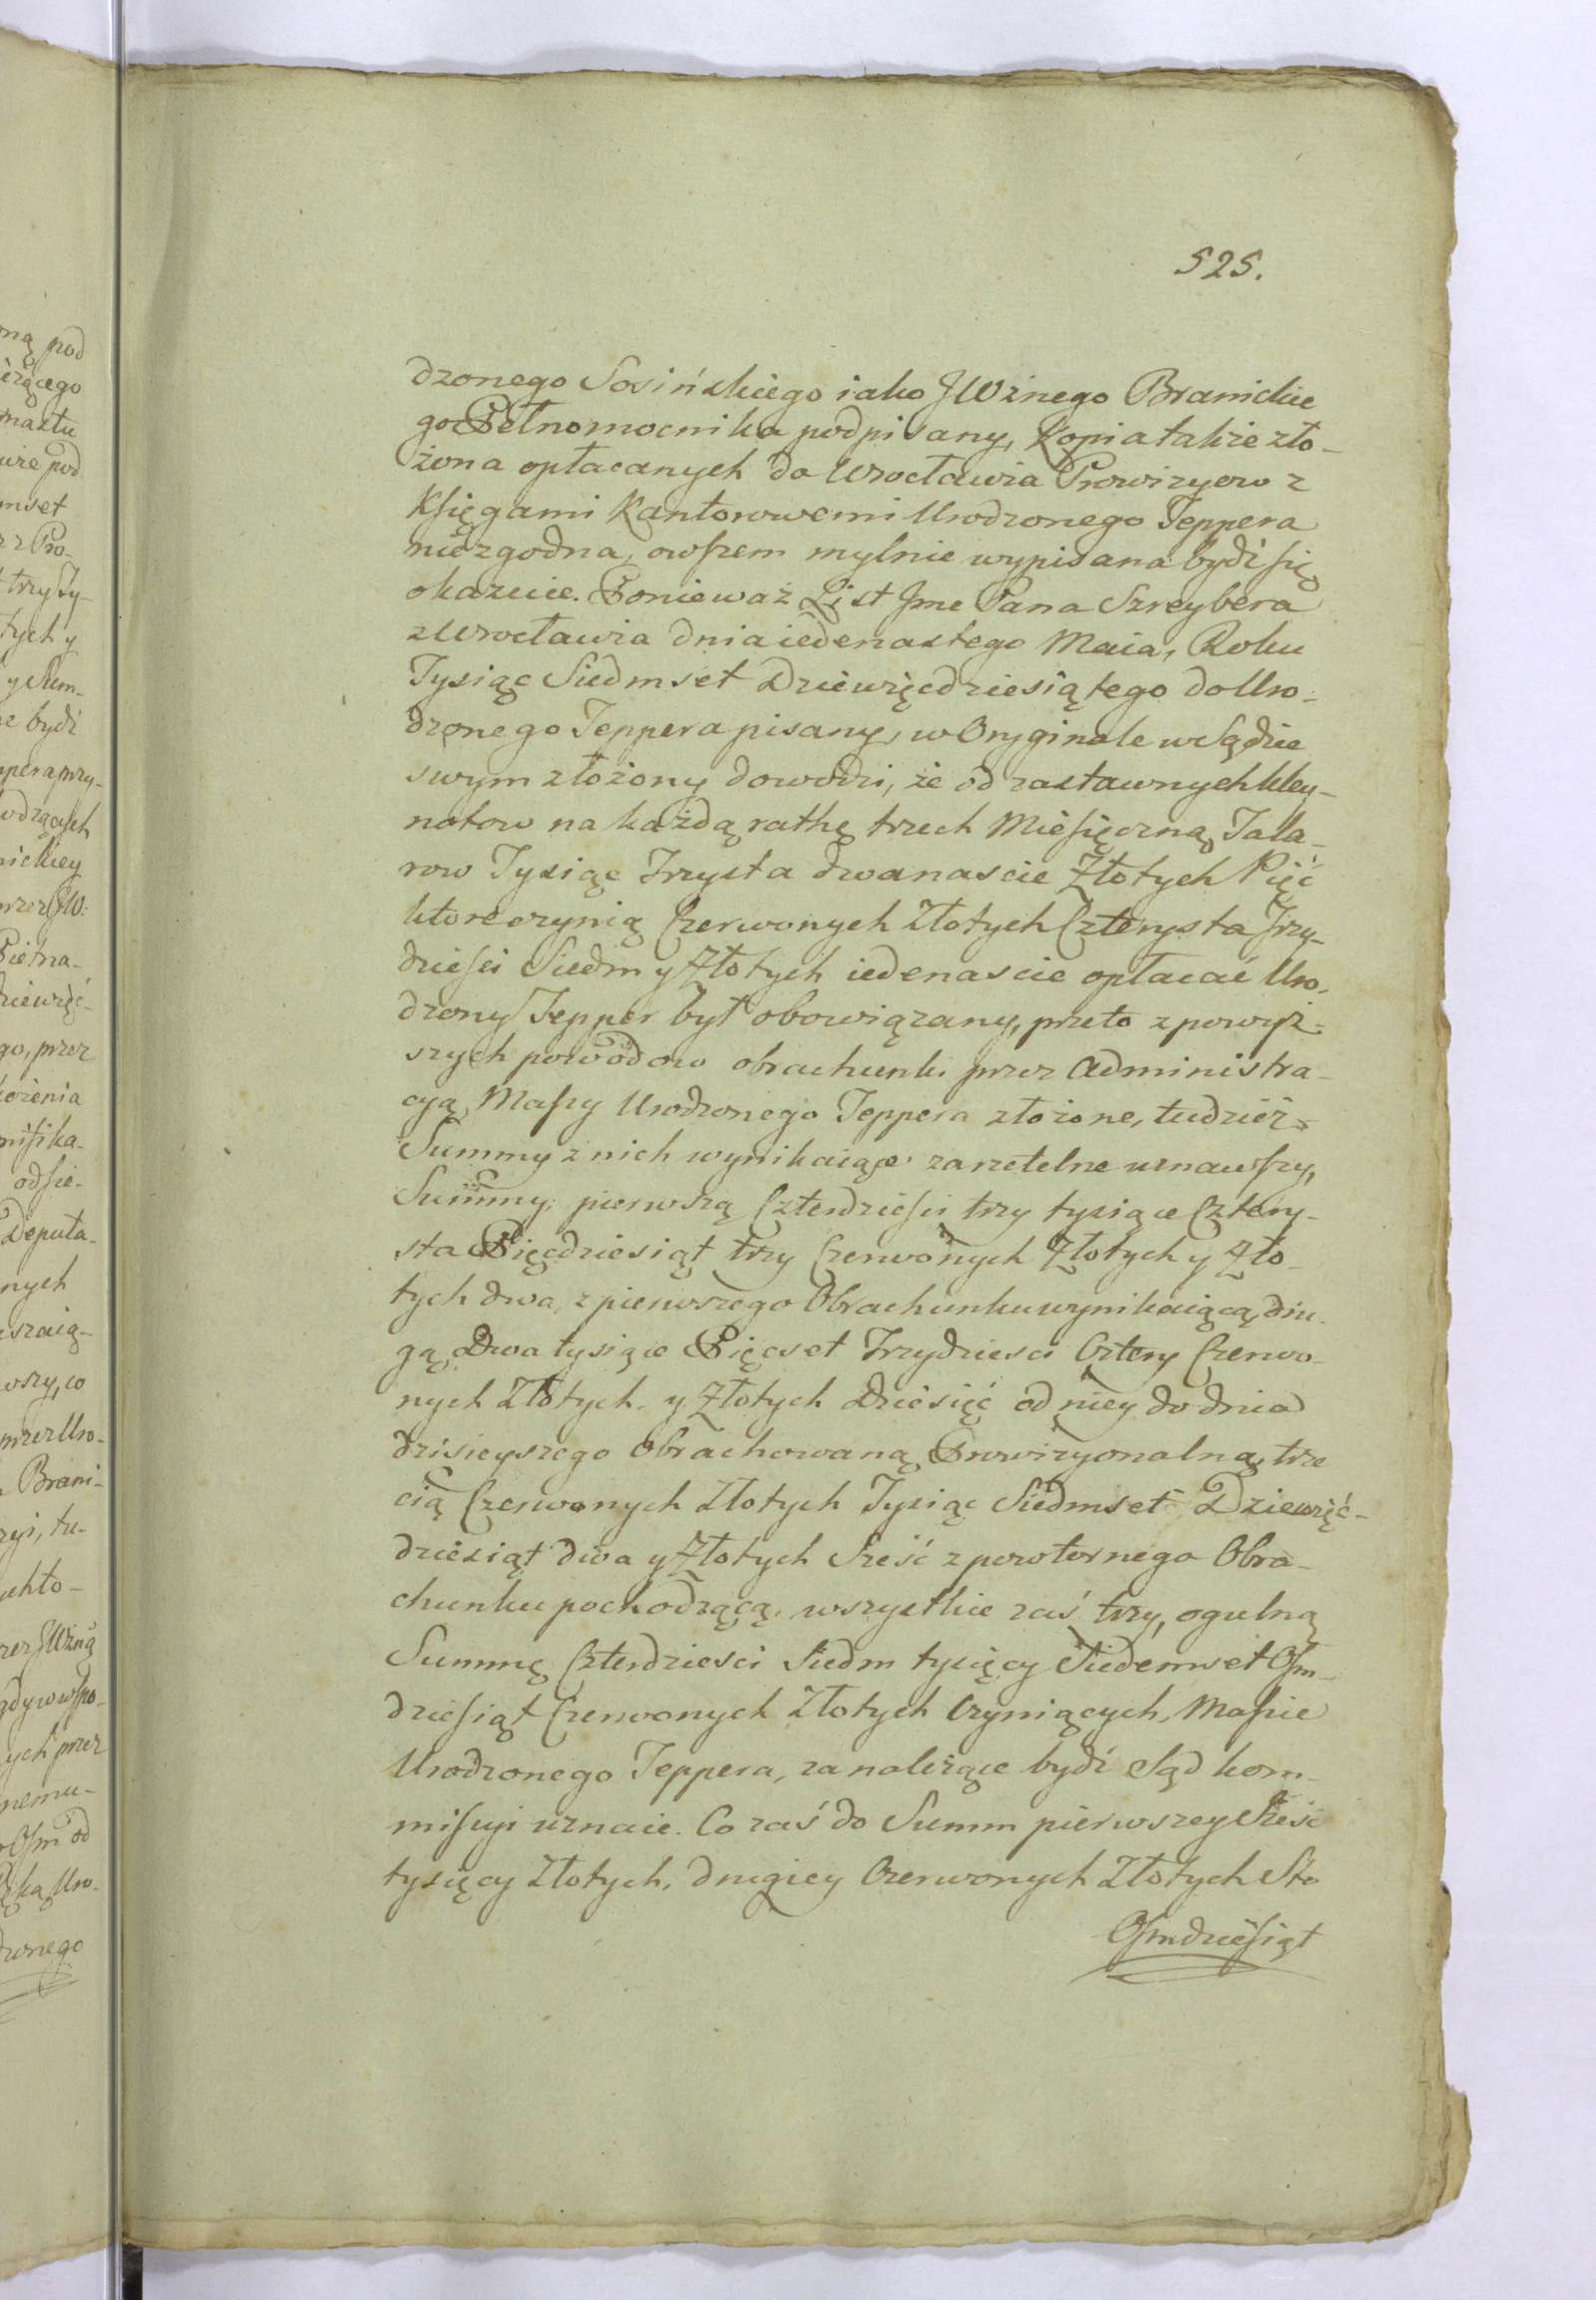 525.
dzonego Sosińskiego iako JWżnego Branickie
go Pełnomocnika podpisany, Kopia także zło-
żona opłacanych do Wrocławia Prowizyow z
Księgami Kantorowemi Urodzonego Teppera
niezgodna, owszem mylnie wypisana bydź się
okazuie. Ponieważ List Jmc Pana Szreybera
z Wrocławia dnia iedenastego Maia, Roku
Tysiąc Siedmset Dziewięćdziesiątego do Uro-
dzonego Teppera pisany, w Oryginale w Sądzie
swym złożony dowodzi, że od zastawnych kley-
notow na każdą rathę trzech Miesięczną Tala-
row Tysiąc Trzysta dwanascie Złotych Pięć
ktore czynią Czerwonych Złotych Czterysta Trzy-
dziesci Siedm y Złotych iedenascie opłacać Uro-
dzony Tepper był obowiązany, przeto z powyż-
szych powodow obrachunki przez Administra-
cyą Massy Urodzonego Teppera złożone, tudzież
Summy z nich wynikaiące za rzetelne uznawszy,
Summy; pierwszą Czterdziesci trzy tysiące Cztery-
sta Pięćdziesiąt trzy Czerwonych Złotych y Zło-
tych dwa, z pierwszego Obrachunku wynikaiącą, dru-
gą Dwa tysiące Pięcset Trzydziesci Cztery Czerwo-
nych Złotych, y Złotych Dziesięć od niey do dnia
dzisieyszego obrachowaną Prowizyonalną, trze
cią Czerwonych Złotych Tysiąc Siedmset Dziewięć-
dziesiąt dwa y Złotych Sześć z powtornego Obra-
chunku pochodzącą, wszystkie zaś trzy, ogulną
Summę Czterdziesci Siedm tysięcy Siedemset Osm-
dziesiąt Czerwonych Złotych Czyniących, Massie
Urodzonego Teppera, za należące bydź Sąd kom-
missyi uznaie. Co zaś do Summ pierwszey Sześć
tysięcy Złotych, drugiey Czerwonych Złotych Sto
Osmdziesiąt